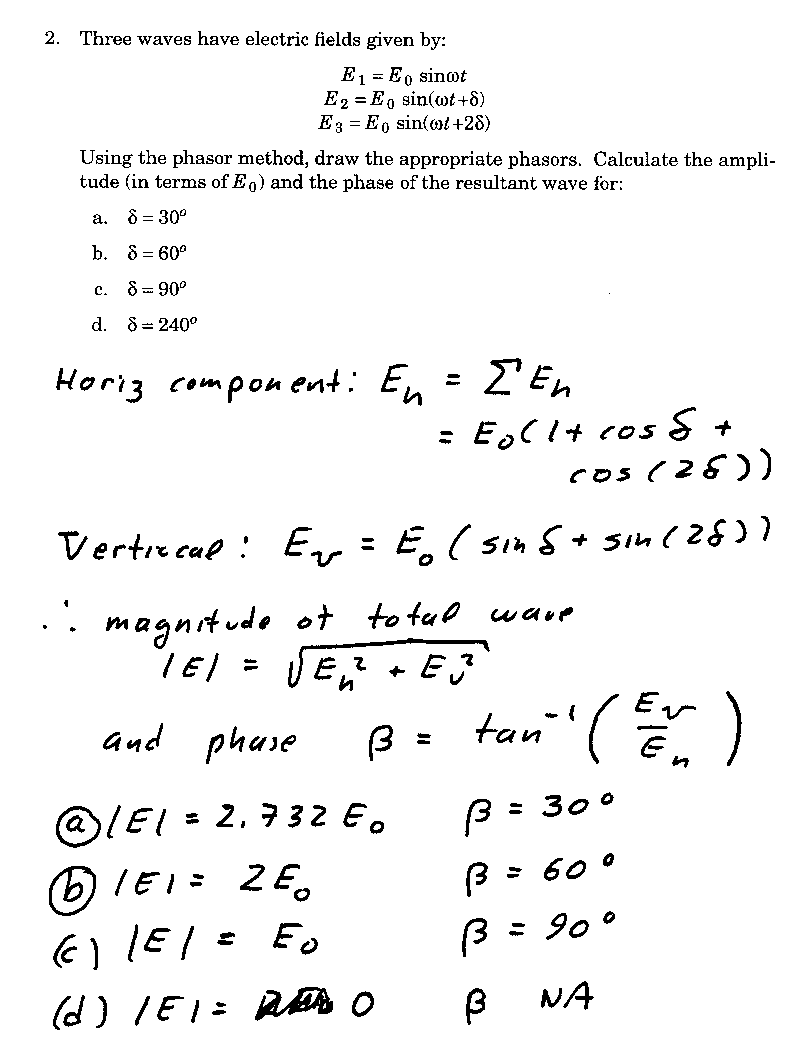 2. Three waves have electric fields given by:
E₁ = E₀ sinωt
E₂ = E₀ sin(ωt+δ)
E₃ = E₀ sin(ωt+2δ)
Using the phasor method, draw the appropriate phasors. Calculate the ampli-
tude (in terms of E₀) and the phase of the resultant wave for:
a. δ = 30°
b. δ = 60°
c. δ = 90°
d. δ = 240°
Horiz component: Eₕ = Σ Eₕ
= E₀(1 + cos δ +
cos (2δ))
Vertical: Eᵥ = E₀ (sin δ + sin (2δ))
∴ magnitude of total wave
|E| = √(Eₕ² + Eᵥ²)
and phase β = tan⁻¹ (Eᵥ/Eₕ)
(a) |E| = 2.732 E₀ β = 30°
(b) |E| = 2E₀ β = 60°
(c) |E| = E₀ β = 90°
(d) |E| = 0 β NA